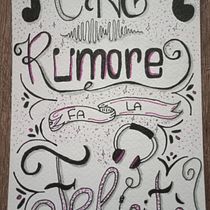 CHE
Rumore
FA LA
Felicità